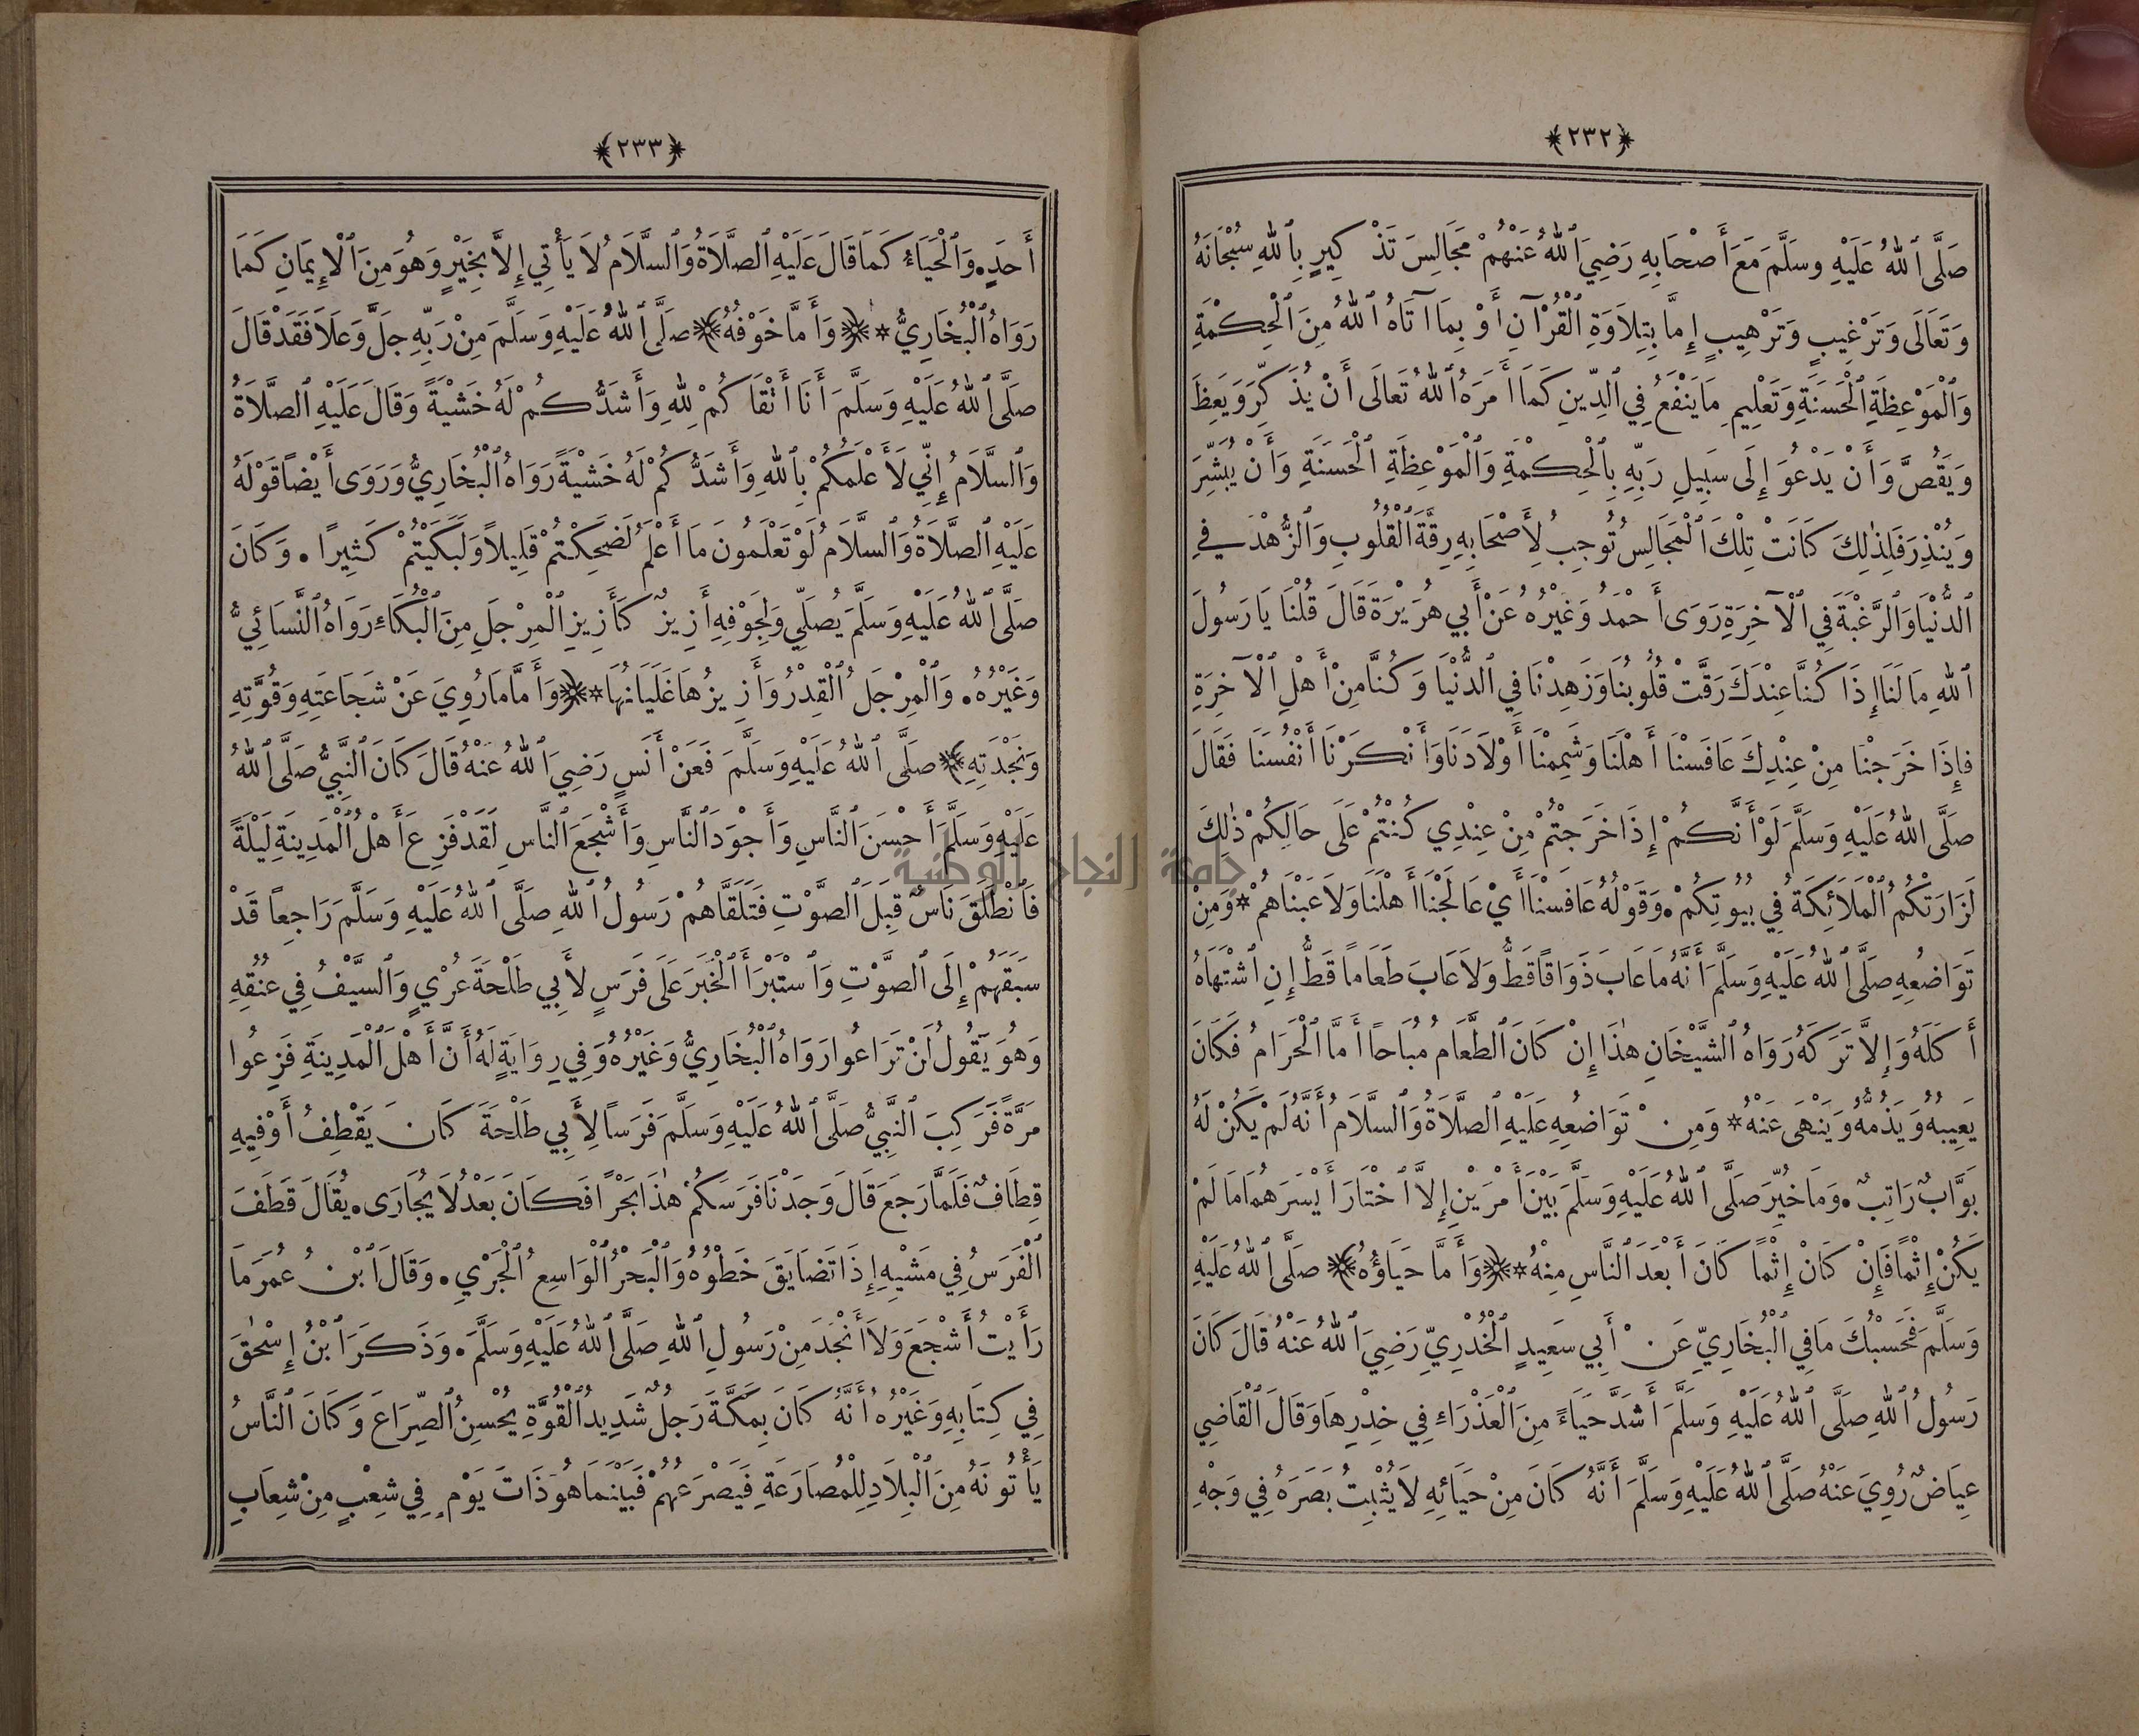 ﴿٢٣٢﴾
صَلَّى ٱللهُ عَلَيْهِ وسَلَّمَ مَعَ أَصْحَابِهِ رَضِيَ ٱللهُ عَنْهُمْ مَجَالِسَ تَذْكِيرٍ بِٱللهِ سُبْحَانَهُ
وَتَعَالَى وَتَرْغِيبٍ وَتَرْهِيبٍ إِمَّا بِتِلاَوَةِ ٱلْقُرْآنِ أَوْ بِمَا آتَاهُ ٱللهُ مِنَ ٱلْحِكْمَةِ
وَٱلْمَوْعِظَةِ ٱلْحَسَنَةِ وَتَعْلِيمِ مَا يَنْفَعُ فِي ٱلدِّينِ كَمَا أَمَرَهُ ٱللهُ تَعَالَى أَنْ يُذَكِّرَ وَيَعِظَ
وَيَقُصَّ وَأَنْ يَدْعُوَ إِلَى سَبِيلِ رَبِّهِ بِٱلْحِكْمَةِ وَٱلْمَوْعِظَةِ ٱلْحَسَنَةِ وَأَنْ يُبَشِّرَ
وَيُنْذِرَ فَلِذٰلِكَ كَانَتْ تِلْكَ ٱلْمَجَالِسُ تُوجِبُ لِأَصْحَابِهِ رِقَّةَ ٱلْقُلُوبِ وَٱلزُّهْدَ فِي
ٱلدُّنْيَا وَٱلرَّغْبَةَ فِي ٱلْآخِرَةِ رَوَى أَحْمَدُ وَغَيْرُهُ عَنْ أَبِي هُرَيْرَةَ قَالَ قُلْنَا يَا رَسُولَ
ٱللهِ مَا لَنَا إِذَا كُنَّا عِنْدَكَ رَقَّتْ قُلُوبُنَا وَزَهِدْنَا فِي ٱلدُّنْيَا وَكُنَّا مِنْ أَهْلِ ٱلْآخِرَةِ
فَإِذَا خَرَجْنَا مِنْ عِنْدِكَ عَافَسْنَا أَهْلَنَا وَشَمِمْنَا أَوْلاَدَنَا وَأَنْكَرْنَا أَنْفُسَنَا فَقَالَ
صَلَّى ٱللهُ عَلَيْهِ وَسَلَّمَ لَوْ أَنَّكُمْ إِذَا خَرَجْتُمْ مِنْ عِنْدِي كُنْتُمْ عَلَى حَالِكُمْ ذٰلِكَ
لَزَارَتْكُمُ ٱلْمَلاَئِكَةُ فِي بُيُوتِكُمْ. وَقَوْلُهُ عَافَسْنَا أَيْ عَالَجْنَا أَهْلَنَا وَلاَعَبْنَاهُمْ * وَمِنْ
تَوَاضُعِهِ صَلَّى ٱللهُ عَلَيْهِ وَسَلَّمَ أَنَّهُ مَا عَابَ ذَوَاقًا قَطُّ وَلاَ عَابَ طَعَامًا قَطُّ إِنِ ٱشْتَهَاهُ
أَكَلَهُ وَإِلاَّ تَرَكَهُ رَوَاهُ ٱلشَّيْخَانِ هٰذَا إِنْ كَانَ ٱلطَّعَامُ مُبَاحًا أَمَّا ٱلْحَرَامُ فَكَانَ
يَعِيبُهُ وَيَذُمُّهُ وَيَنْهَى عَنْهُ * وَمِنْ تَوَاضُعِهِ عَلَيْهِ ٱلصَّلاَةُ وَٱلسَّلاَمُ أَنَّهُ لَمْ يَكُنْ لَهُ
بَوَّابٌ رَاتِبٌ. وَمَا خُيِّرَ صَلَّى ٱللهُ عَلَيْهِ وَسَلَّمَ بَيْنَ أَمْرَيْنِ إِلاَّ ٱخْتَارَ أَيْسَرَهُمَا مَا لَمْ
يَكُنْ إِثْمًا فَإِنْ كَانَ إِثْمًا كَانَ أَبْعَدَ ٱلنَّاسِ مِنْهُ * ﴿وَأَمَّا حَيَاؤُهُ﴾ صَلَّى ٱللهُ عَلَيْهِ
وَسَلَّمَ فَحَسْبُكَ مَا فِي ٱلْبُخَارِيِّ عَنْ أَبِي سَعِيدٍ ٱلْخُدْرِيِّ رَضِيَ ٱللهُ عَنْهُ قَالَ كَانَ
رَسُولُ ٱللهِ صَلَّى ٱللهُ عَلَيْهِ وَسَلَّمَ أَشَدَّ حَيَاءً مِنَ ٱلْعَذْرَاءِ فِي خِدْرِهَا وَقَالَ ٱلْقَاضِي
عِيَاضٌ رُوِيَ عَنْهُ صَلَّى ٱللهُ عَلَيْهِ وَسَلَّمَ أَنَّهُ كَانَ مِنْ حَيَائِهِ لاَ يُثْبِتُ بَصَرَهُ فِي وَجْهِ
﴿٢٣٣﴾
أَحَدٍ. وَٱلْحَيَاءُ كَمَا قَالَ عَلَيْهِ ٱلصَّلاَةُ وَٱلسَّلاَمُ لاَ يَأْتِي إِلاَّ بِخَيْرٍ وَهُوَ مِنَ ٱلْإِيمَانِ كَمَا
رَوَاهُ ٱلْبُخَارِيُّ * ﴿وَأَمَّا خَوْفُهُ﴾ صَلَّى ٱللهُ عَلَيْهِ وَسَلَّمَ مِنْ رَبِّهِ جَلَّ وَعَلاَ فَقَدْ قَالَ
صَلَّى ٱللهُ عَلَيْهِ وَسَلَّمَ أَنَا أَتْقَاكُمْ لِلهِ وَأَشَدُّكُمْ لَهُ خَشْيَةً وَقَالَ عَلَيْهِ ٱلصَّلاَةُ
وَٱلسَّلاَمُ إِنِّي لَأَعْلَمُكُمْ بِٱللهِ وَأَشَدُّكُمْ لَهُ خَشْيَةً رَوَاهُ ٱلْبُخَارِيُّ وَرَوَى أَيْضًا قَوْلَهُ
عَلَيْهِ ٱلصَّلاَةُ وَٱلسَّلاَمُ لَوْ تَعْلَمُونَ مَا أَعْلَمُ لَضَحِكْتُمْ قَلِيلاً وَلَبَكَيْتُمْ كَثِيرًا. وَكَانَ
صَلَّى ٱللهُ عَلَيْهِ وَسَلَّمَ يُصَلِّي وَلِجَوْفِهِ أَزِيزٌ كَأَزِيزِ ٱلْمِرْجَلِ مِنَ ٱلْبُكَاءِ رَوَاهُ ٱلنَّسَائِيُّ
وَغَيْرُهُ. وَٱلْمِرْجَلُ ٱلْقِدْرُ وَأَزِيزُهَا غَلَيَانُهَا * ﴿وَأَمَّا مَا رُوِيَ عَنْ شَجَاعَتِهِ وَقُوَّتِهِ
وَنَجْدَتِهِ﴾ صَلَّى ٱللهُ عَلَيْهِ وَسَلَّمَ فَعَنْ أَنَسٍ رَضِيَ ٱللهُ عَنْهُ قَالَ كَانَ ٱلنَّبِيُّ صَلَّى ٱللهُ
عَلَيْهِ وَسَلَّمَ أَحْسَنَ ٱلنَّاسِ وَأَجْوَدَ ٱلنَّاسِ وَأَشْجَعَ ٱلنَّاسِ لَقَدْ فَزِعَ أَهْلُ ٱلْمَدِينَةِ لَيْلَةً
فَٱنْطَلَقَ نَاسٌ قِبَلَ ٱلصَّوْتِ فَتَلَقَّاهُمْ رَسُولُ ٱللهِ صَلَّى ٱللهُ عَلَيْهِ وَسَلَّمَ رَاجِعًا قَدْ
سَبَقَهُمْ إِلَى ٱلصَّوْتِ وَٱسْتَبْرَأَ ٱلْخَبَرَ عَلَى فَرَسٍ لأَبِي طَلْحَةَ عُرْيٍ وَٱلسَّيْفُ فِي عُنُقِهِ
وَهُوَ يَقُولُ لَنْ تُرَاعُوا رَوَاهُ ٱلْبُخَارِيُّ وَغَيْرُهُ وَفِي رِوَايَةٍ لَهُ أَنَّ أَهْلَ ٱلْمَدِينَةِ فَزِعُوا
مَرَّةً فَرَكِبَ ٱلنَّبِيُّ صَلَّى ٱللهُ عَلَيْهِ وَسَلَّمَ فَرَسًا لِأَبِي طَلْحَةَ كَانَ يَقْطِفُ أَوْ فِيهِ
قِطَافٌ فَلَمَّا رَجَعَ قَالَ وَجَدْنَا فَرَسَكُمْ هٰذَا بَحْرًا فَكَانَ بَعْدُ لاَ يُجَارَى. يُقَالَ قَطَفَ
ٱلْفَرَسُ فِي مَشْيِهِ إِذَا تَضَايَقَ خَطْوُهُ وَٱلْبَحْرُ ٱلْوَاسِعُ ٱلْجَرْيِ. وَقَالَ ٱبْنُ عُمَرَ مَا
رَأَيْتُ أَشْجَعَ وَلاَ أَنْجَدَ مِنْ رَسُولِ ٱللهِ صَلَّى ٱللهُ عَلَيْهِ وَسَلَّمَ. وَذَكَرَ ٱبْنُ إِسْحٰقَ
فِي كِتَابِهِ وَغَيْرُهُ أَنَّهُ كَانَ بِمَكَّةَ رَجُلٌ شَدِيدُ ٱلْقُوَّةِ يُحْسِنُ ٱلصِّرَاعَ وَكَانَ ٱلنَّاسُ
يَأْتُونَهُ مِنَ ٱلْبِلاَدِ لِلْمُصَارَعَةِ فَيَصْرَعُهُمْ فَبَيْنَمَا هُوَ ذَاتَ يَوْمٍ فِي شِعْبٍ مِنْ شِعَابِ
جامعة النجاح الوطنية